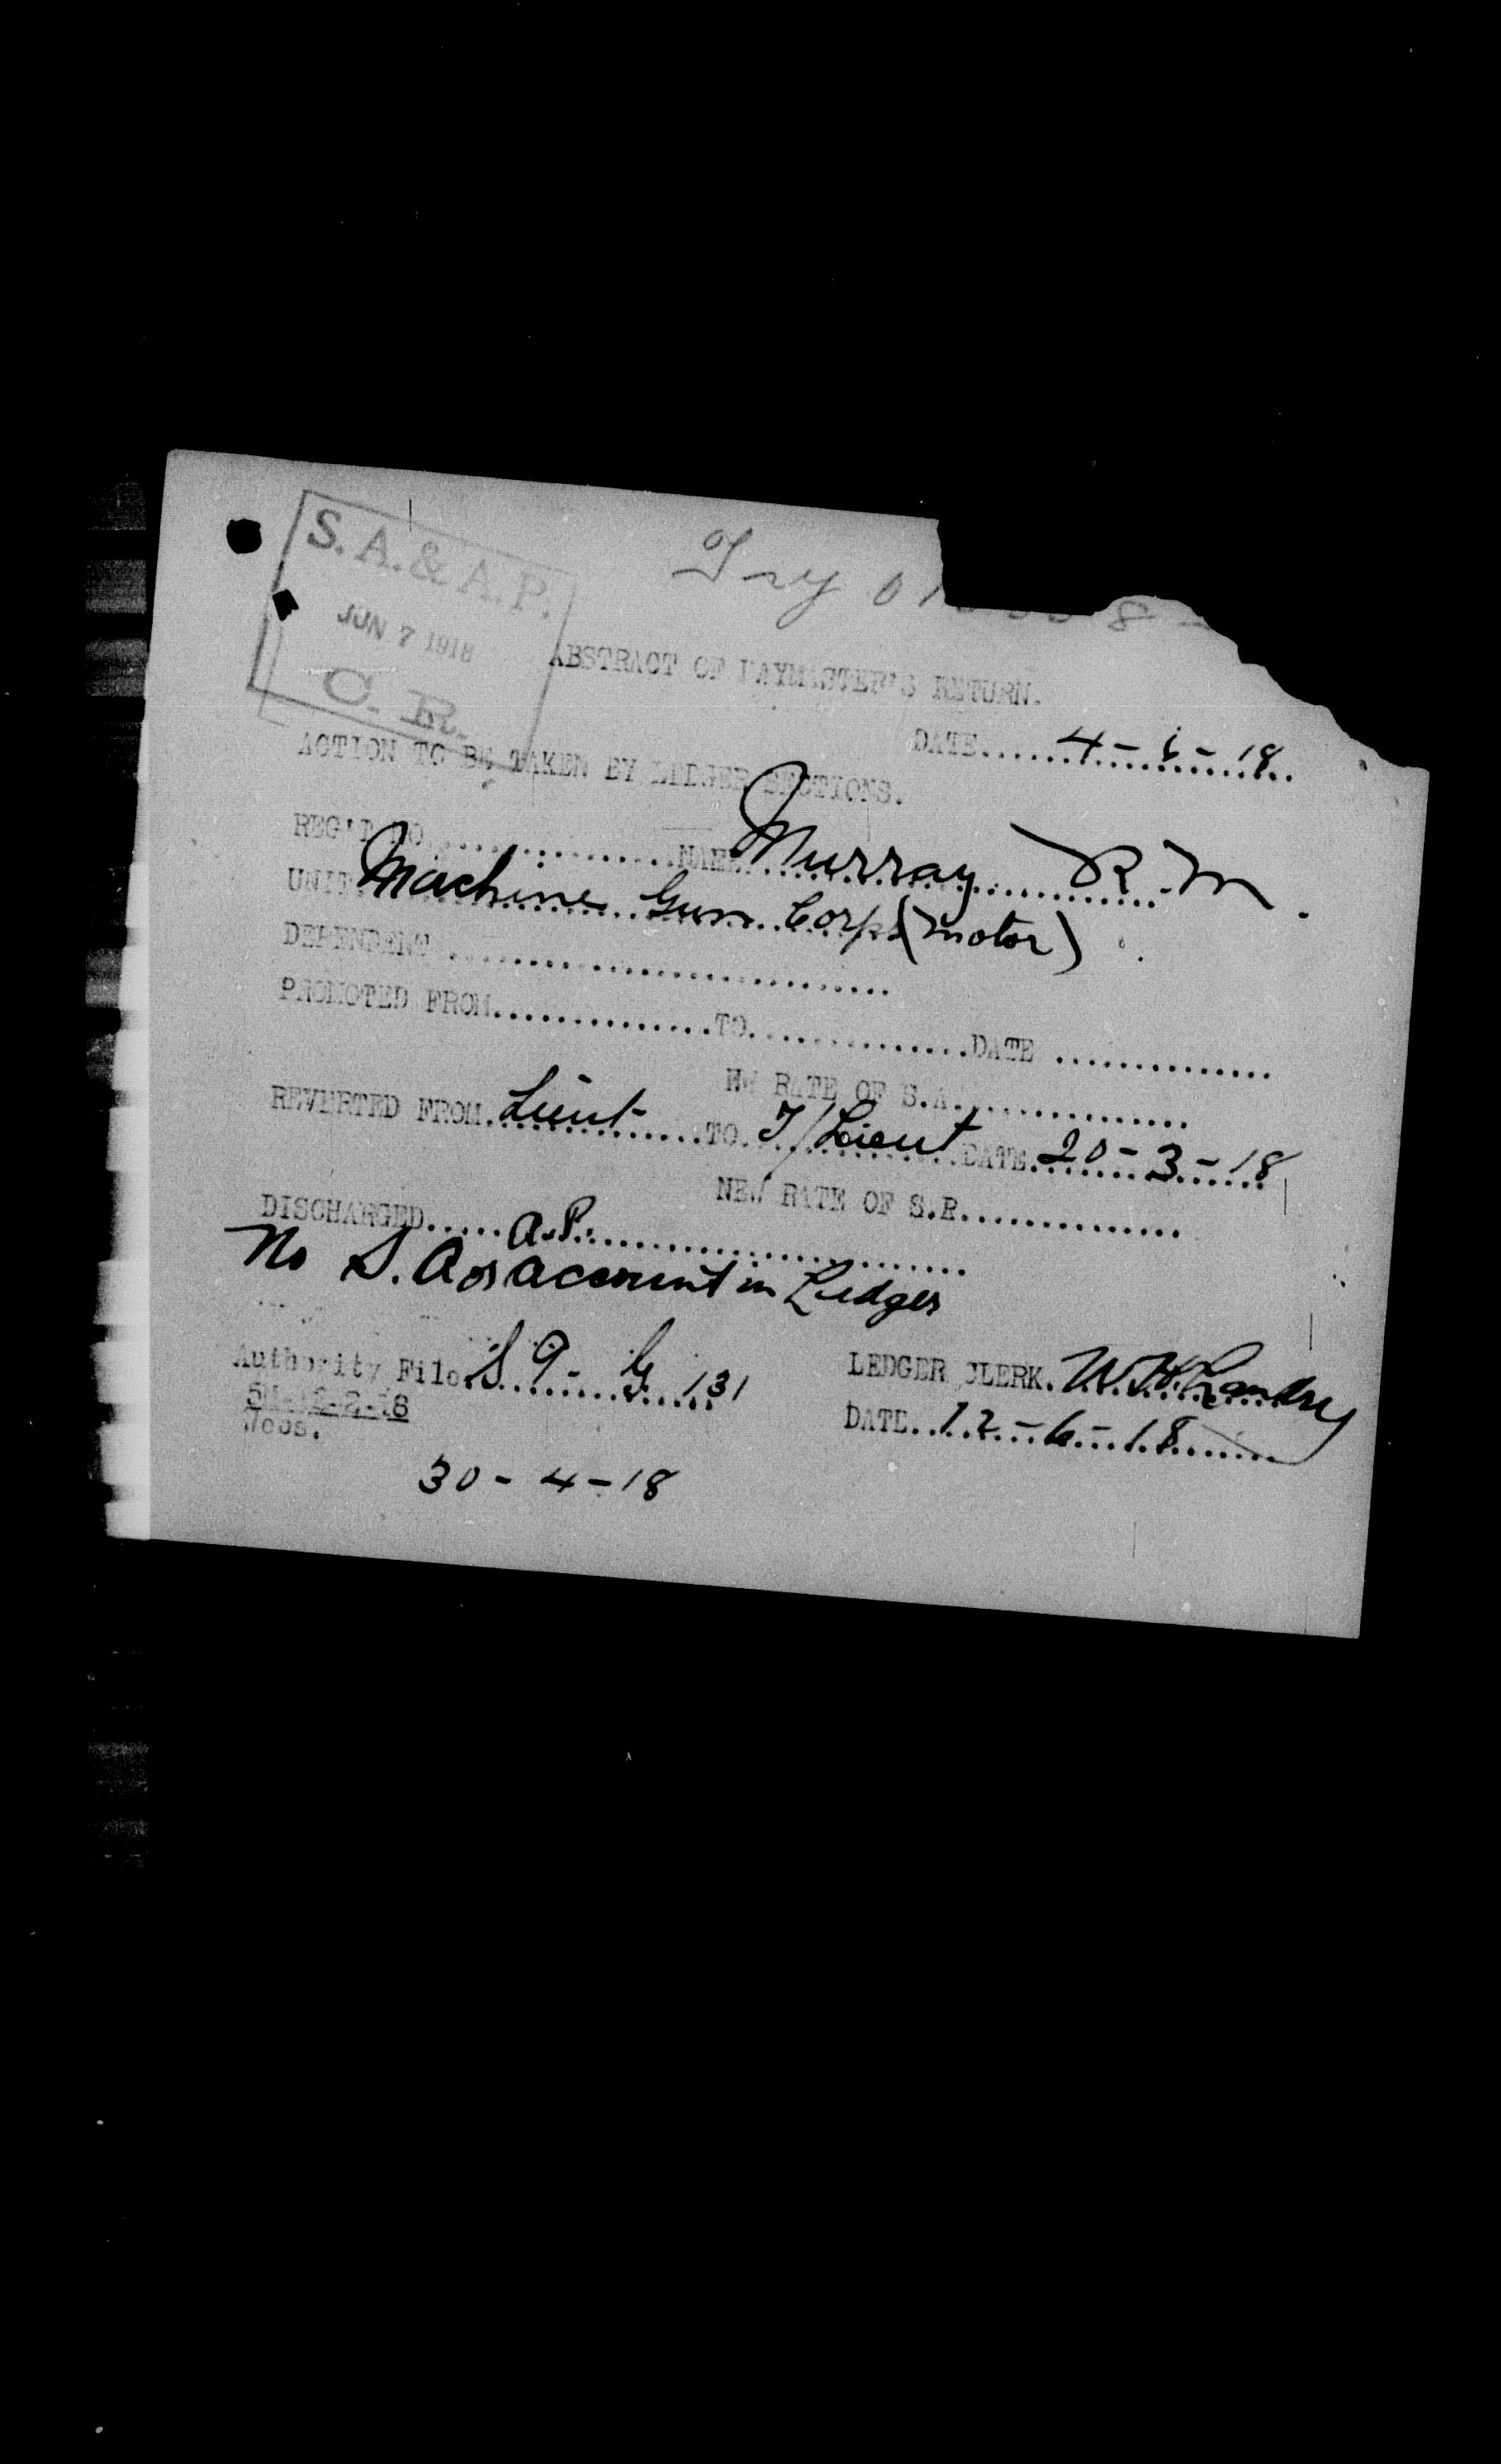 S.A.&A.P.
JUN 7 1918
C.R.
Try
ABSTRACT OF PAYMASTER'S RETURN.
DATE.....4-6-18
ACTION TO BE TAKEN BY LEDGER SECTIONS.
REG'T NO...............NAME Murray R.M.
UNIT Machine Gun Corps (Motor)
DEPENDENT ............................
PROMOTED FROM..............TO..............DATE ..............
NEW RATE OF S.A...............
REVERTED FROM. Lieut TO. T/Lieut DATE 20-3-18
NEW RATE OF S.R...............
DISCHARGED.....A.P.
No S.A or account in Ledger
Authority File. S 9 - G 131
LEDGER CLERK.
DATE..12-6-18
30-4-18